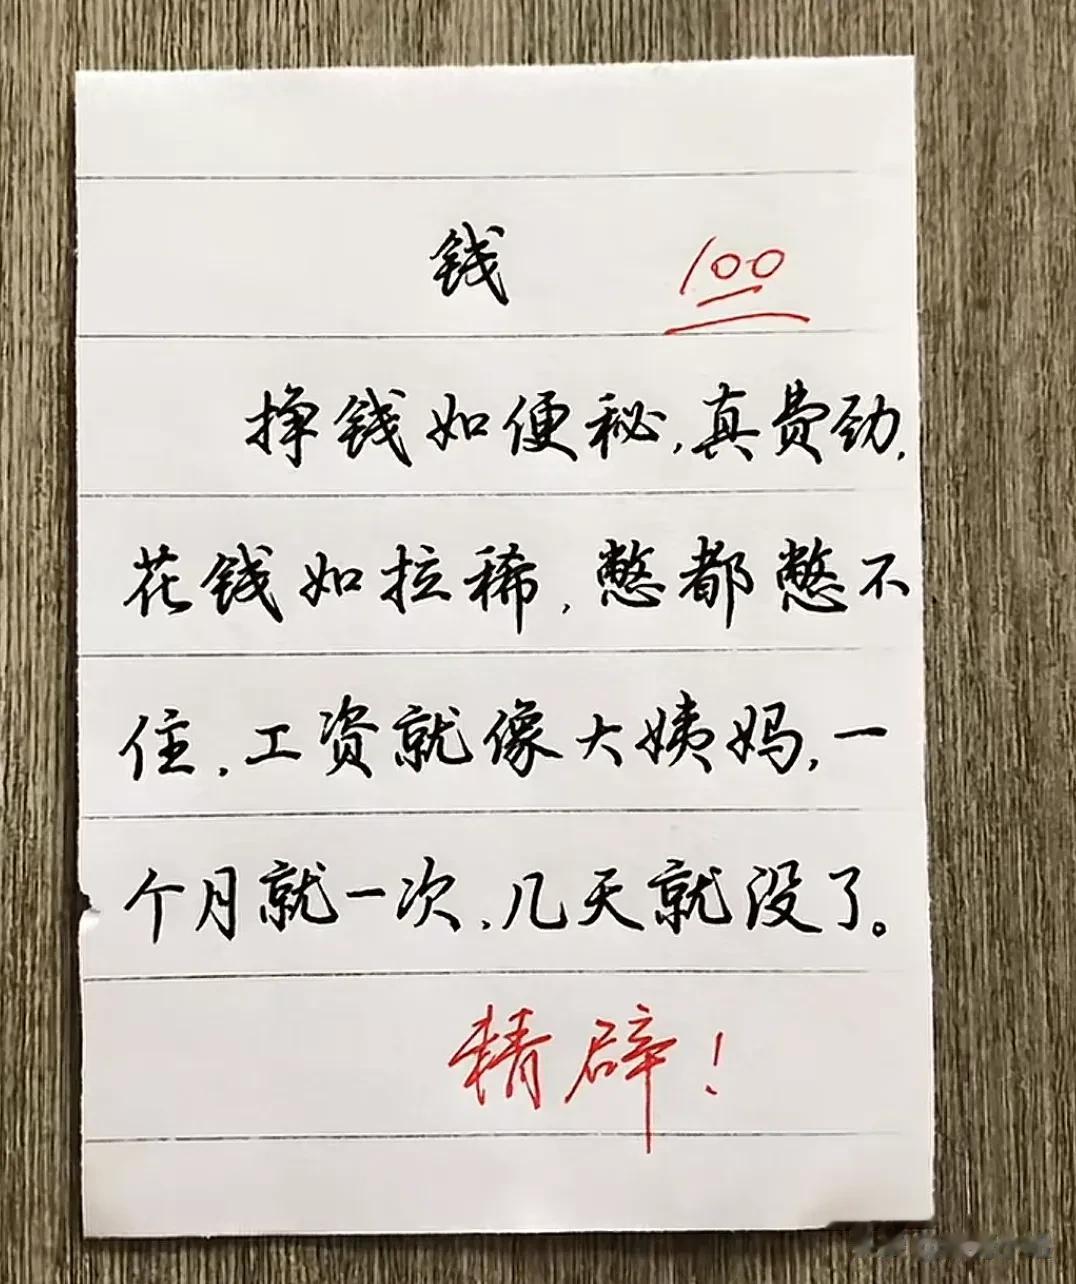 钱 100
挣钱如便秘,真费劲,
花钱如拉稀,憋都憋不
住,工资就像大姨妈,一
个月就一次,几天就没了。
精辟!